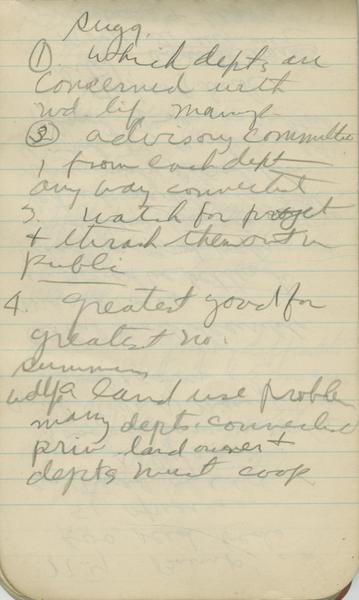 Sugg.
① Which depts are
concerned with
wd lif manag
② advisory committee
1 from each dept
any way connected
3. watch for
& thrash them out in
public
4. greatest good for
greatest no.
Summary
wdlf a land use problem
many depts. connected
priv. land owner &
depts must coop